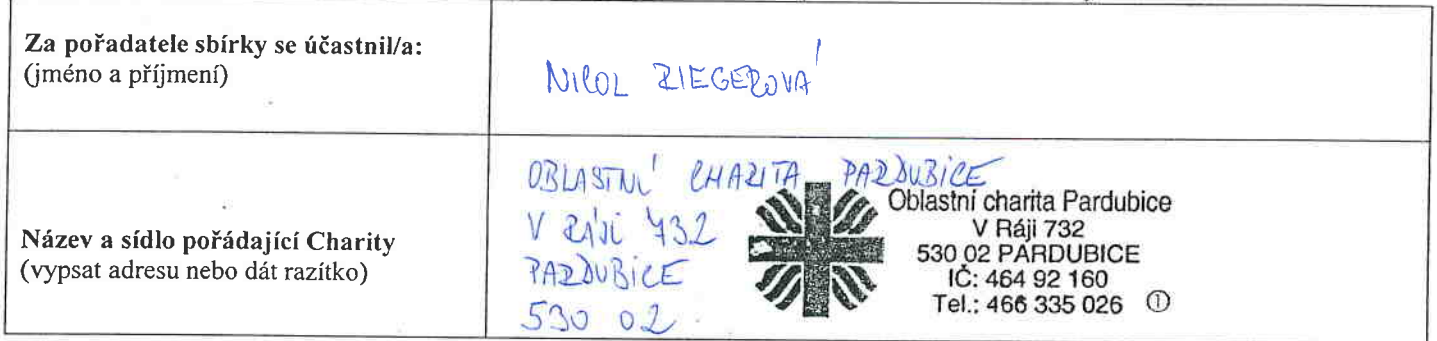 Za pořadatele sbírky se účastnil/a:
(jméno a příjmení)
NICOL RIEGEROVÁ
Název a sídlo pořádající Charity
(vypsat adresu nebo dát razítko)
OBLASTNÍ CHARITA PARDUBICE
V RÁJI 732
PARDUBICE
530 02
Oblastní charita Pardubice
V Ráji 732
530 02 PARDUBICE
IČ: 464 92 160
Tel.: 466 335 026 ①